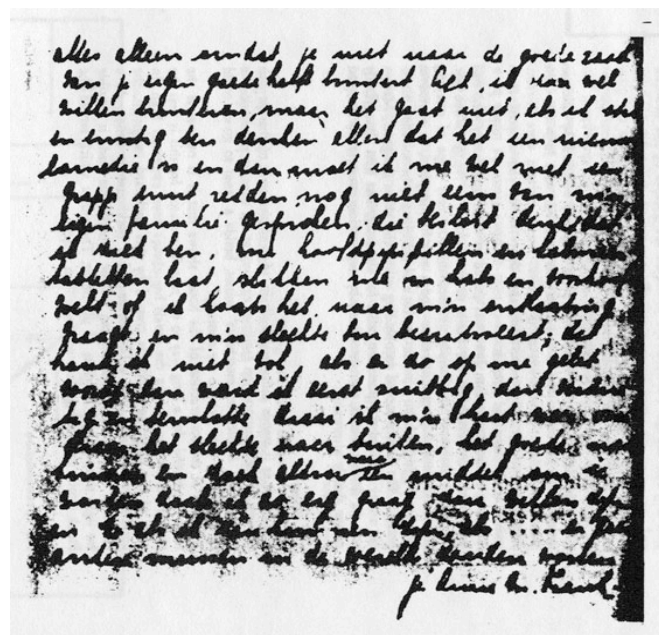 alles alleen omdat je niet naar de goede raad
van je eigen goede helft luistert
willen luisteren, maar het gaat niet, als ik stil
en ernstig ben denken allen dat het een nieuwe
comedie is en dan moet ik me wel met een
grapje eruit redden nog niet eens van mijn
eigen familie gesproken, die beslist denkt dat
ik ziek ben, me hoofdpijnpillen en
tabletten laat slikken me in hals en voorhoofd
voelt of ik koorts heb, naar m'n ontlasting
vraagt en m'n slechte bui becritiseert, dat
houd ik niet vol als er zo op me gelet
wordt dan word ik eerst snibbig, dan
en tenslotte draai ik m'n hart weer om
het slechte naar buiten, het goede naar
binnen en zoek alleen naar een middel om te
worden zoals ik zo erg graag zou willen zijn
en zoals ik zou kunnen zijn, als ..... er geen
andere mensen in de wereld zouden wonen
je Anne M. Frank.